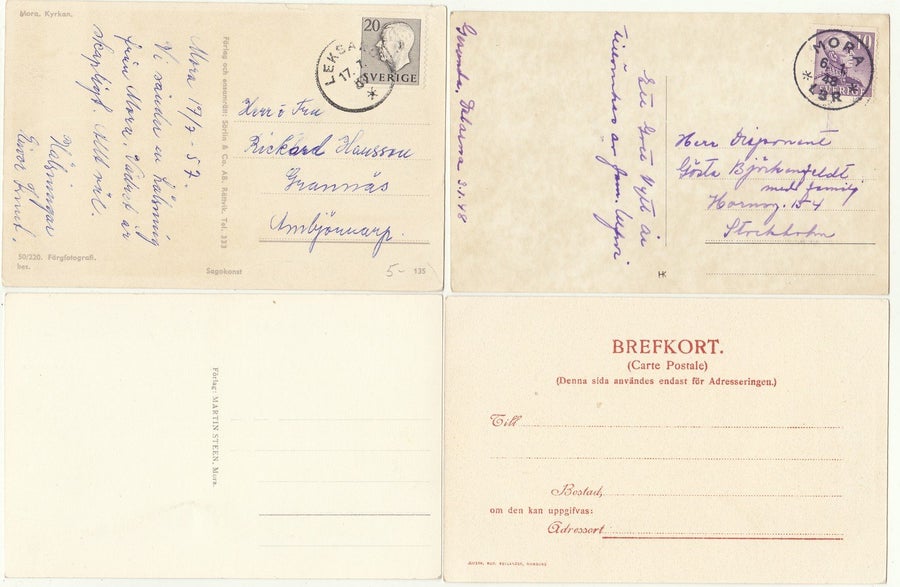 Mora. Kyrkan.
Mora 17/7 - 57.
Vi sänder en hälsning
från Mora, vädret är
skapligt. Allt väl.
Hälsningar
50/220. Färgfotografi.
bet.
Förlag och ensamrätt: Sörlin & Co. AB. Rättvik. Tel. 333
Sagokonst
20
SVERIGE
LEKSA
17. 7.
57
Herr o Fru
Rickard Hansson
Grannäs
Ambjörnarp.
5-
135
Gesunda, Dalarna 3.1.48
Ett Gott Nytt år
tillönskas av fam.
HK
10
SVERIGE
MORA
6. 1.
48
LBR
Herr Disponent
Gösta Björkenfeldt
med familj
Hornsg. 154
Stockholm
Förlag: MARTIN STEEN, Mora.
BREFKORT.
(Carte Postale)
(Denna sida användes endast för Adresseringen.)
Till
Bostad,
om den kan uppgifvas:
Adressort